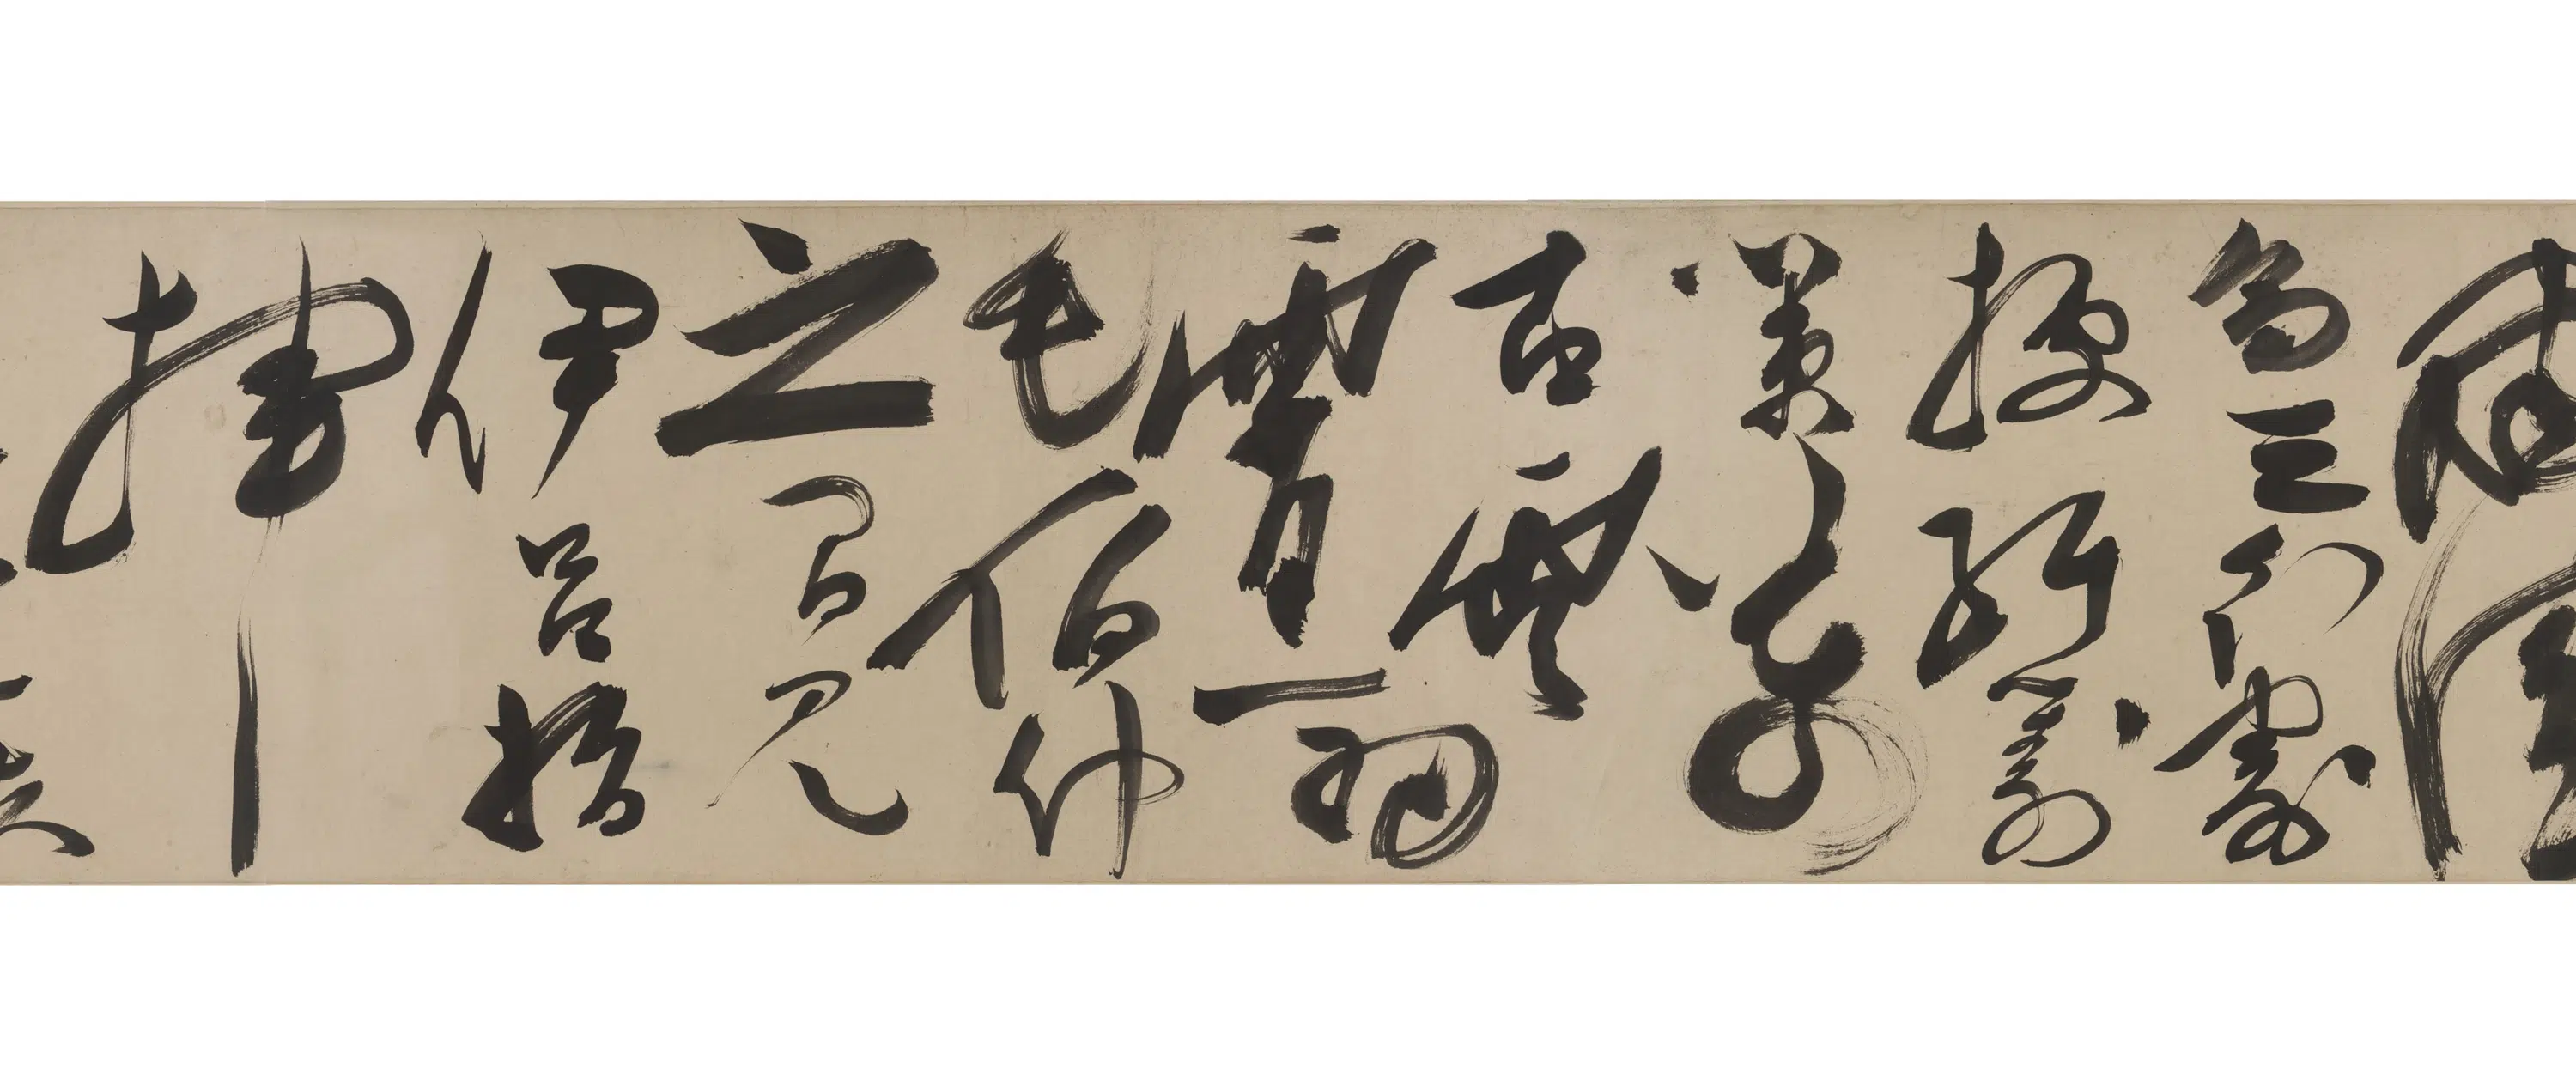 高三分割
據紆籌
策萬
古雲
霄一羽
毛伯仲
之間見
伊呂指
揮